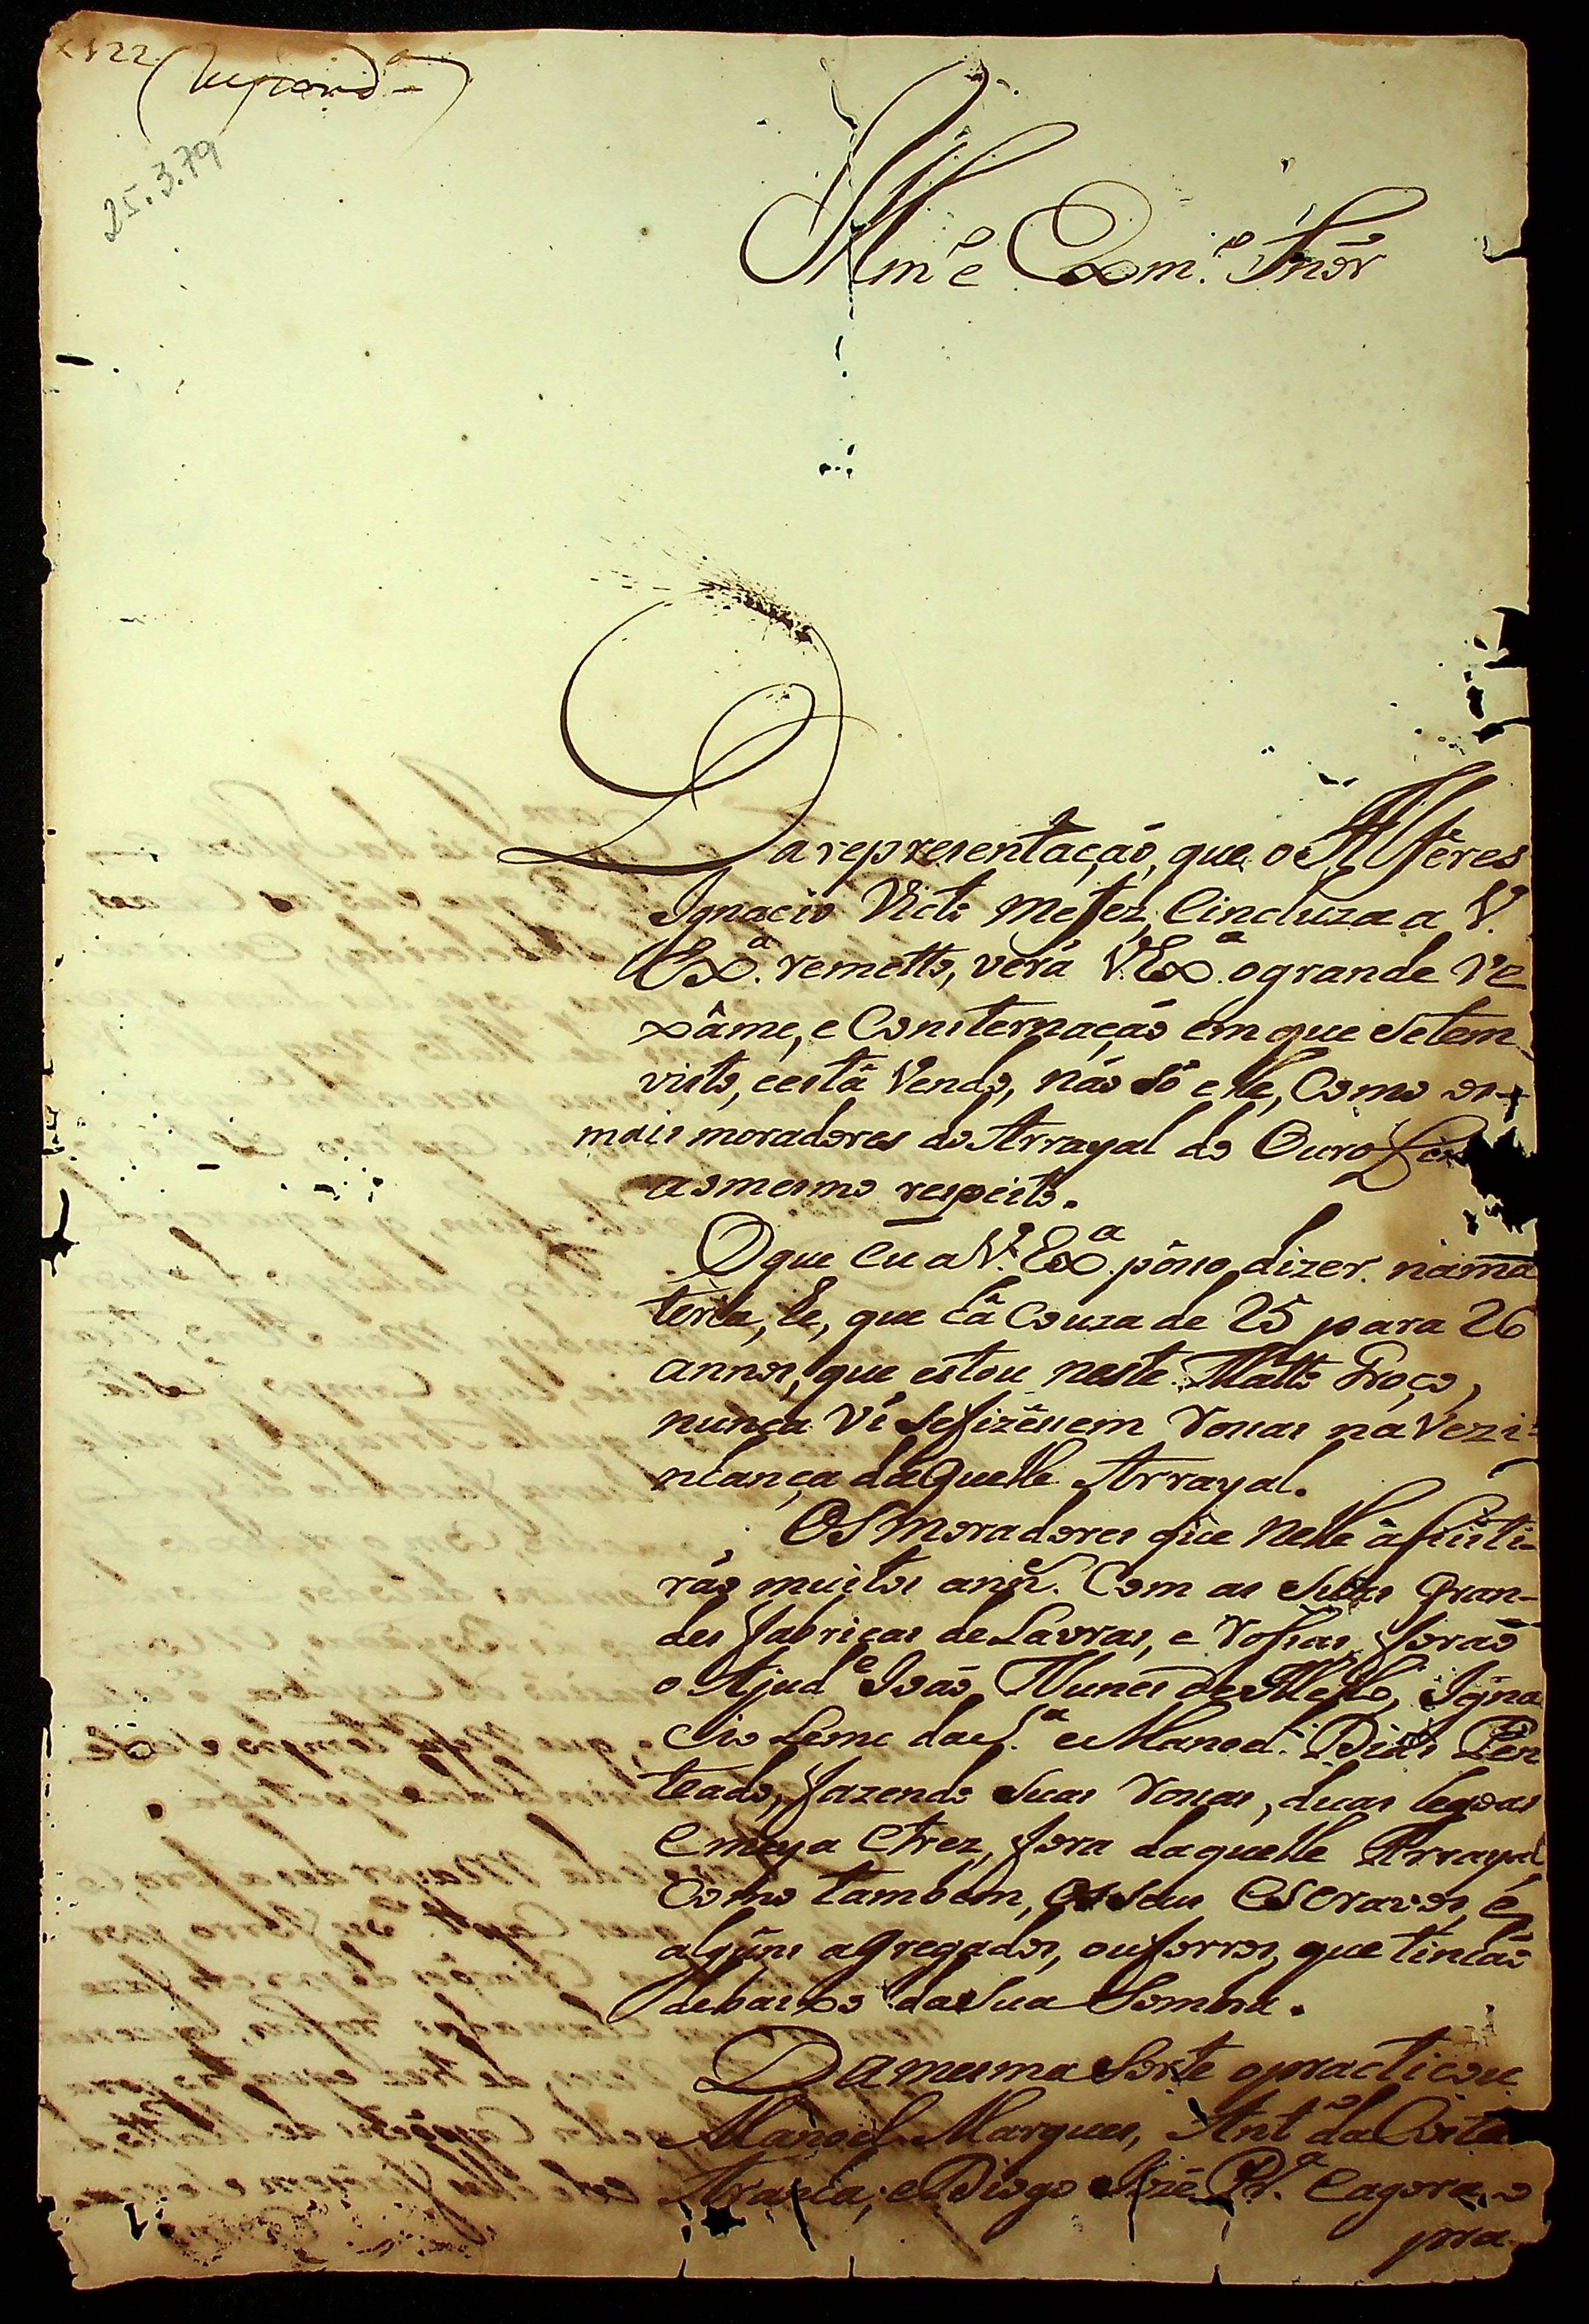 (Respond.ª)
25.3.79
Illmº e Exmº Snõr
Da reprezentação, que o Alferes
Ignacio
Exª. remetto, verá V. Exª. o grande Ve
xâme, e Consternação em que Setem
visto, e está Vendo, não só elle, Como os
mais moradores do Arrayal do Ouro
ao mesmo respeito.
O que Eu a V. Exª. pósso dizer na ma
teria, he, que cá Couza de 25 para 26
annos, que estou neste Matto Groço,
nunca Vi Sefizéssem rossas na Vezi-
nhança daquelle Arrayal.
Os moradores que nelle assisti-
rão muitos ann.ˢ Com as Suas gran-
des fabricas de Lavras, e rossas, forão
o Ajud.ᵉ João Nunes de Mello, Igna
cio Leme da S.ª e Manoel Dias Pen
teado, fazendo Suas rossas, duas legoas
e meya e trez, fora daquelle Arrayal
Como tambem, os seus escravos, e
algũns agregados, ou forros, que tinhão
debaixo da Sua Sombra.
Da mesma Sorte o practicou
Manoel Marques, Antº da Costa
e Diogo José Pr.ª e agora o
pra-